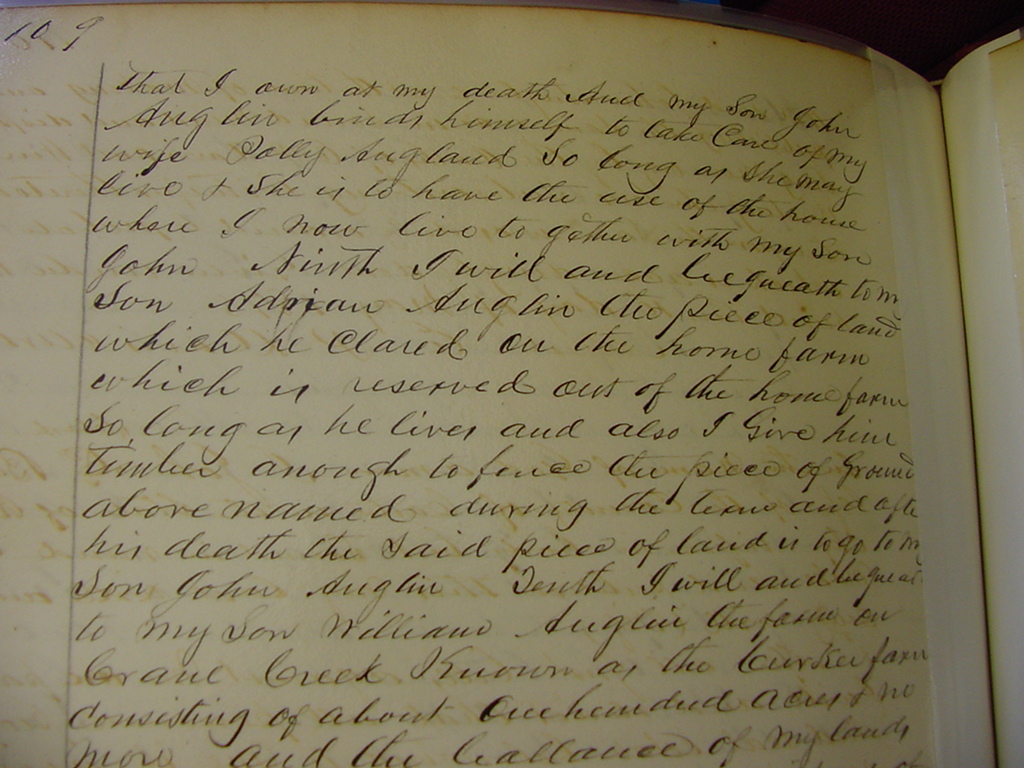 109
that I own at my death And my Son John
Anglin binds himself to take Care of my
wife Polly Angland So long as She may
live & She is to have the use of the house
where I now live to gether with my Son
John Ninth I will and bequeath to m
Son Adrian Anglin the piece of land
which he Clared on the home farm
which is reserved out of the home farm
So long as he lives and also I Give him
timber anough to fence the piece of Ground
above named during the time and afte
his death the Said piece of land is to go to m
Son John Anglin Tenth I will and bequeat
to my Son William Anglin the farm on
Crane Creek Known as the farm
Consisting of about One hundred acres & no
more and the ballance of my lands